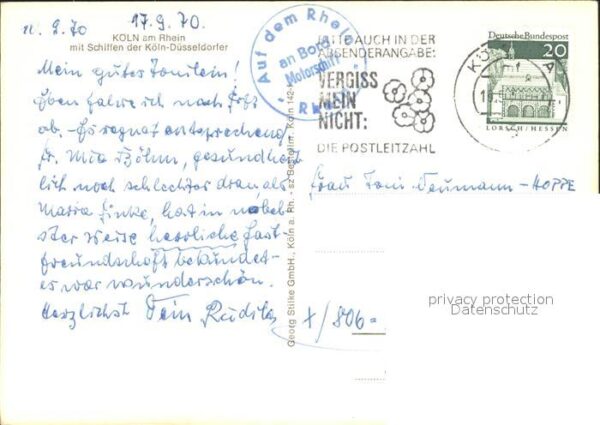 11. 9. 70
17. 9. 70.
KÖLN am Rhein
mit Schiffen der Köln-Düsseldorfer
Mein gutes
Eben fahre ich nach
ab. Es regnet entsprechend
Fr. Mia Böhm, gesundheit
lich noch schlechter dran als
Maria Finke, hat in nobel
ster Weise herrliche Gast
freundschaft bekundet -
es war wunderschön.
Herzlichst Dein
Auf dem Rhein
an Bord
Motorschiff
BITTE AUCH IN DER
ABSENDERANGABE:
VERGISS
MEIN
NICHT:
DIE POSTLEITZAHL
Deutsche Bundespost
20
LORSCH/HESSEN
Frau Toni Neumann-HOPPE
Georg Stilke GmbH., Köln a. Rh. - sz Bestellnr. Köln 142
privacy protection
Datenschutz